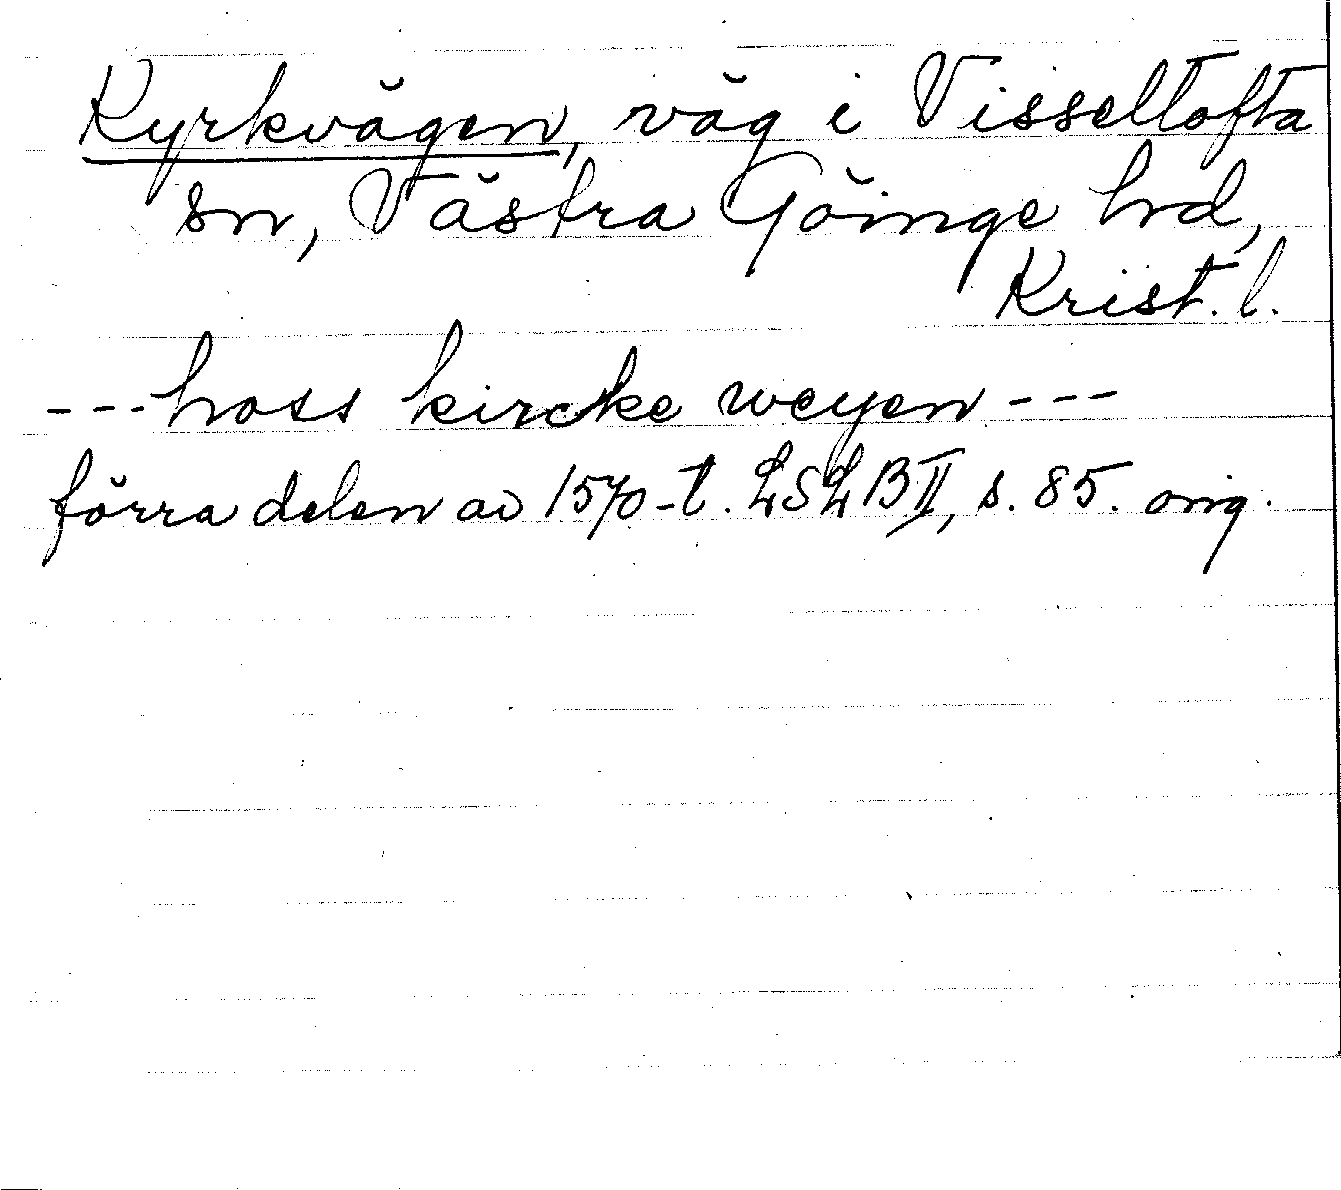 Kyrkvägen, väg i Visseltofta
sn, Västra Göinge hd,
Krist. l.
---hoss kircke weyen---
förra delen av 1570-t. LSLB II, s. 85. orig.